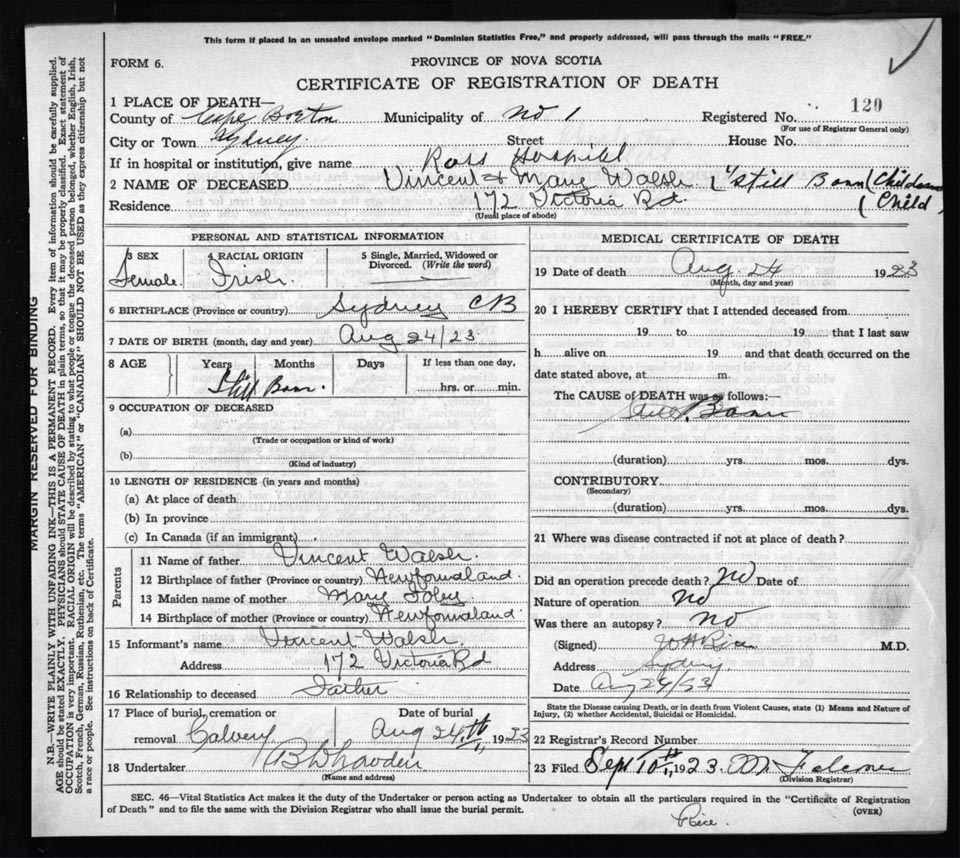 This form if placed in an unsealed envelope marked "Dominion Statistics Free," and properly addressed, will pass through the mails "FREE."
FORM 6.
PROVINCE OF NOVA SCOTIA
CERTIFICATE OF REGISTRATION OF DEATH
120
1 PLACE OF DEATH—
County of Cape Breton Municipality of No 1 Registered No.
(For use of Registrar General only)
City or Town Sydney Street House No.
If in hospital or institution, give name Ross Hospital
2 NAME OF DECEASED Vincent & Mary Walsh ( Still Born (
Residence 172 Victoria Rd. ( Child)
(Usual place of abode)
PERSONAL AND STATISTICAL INFORMATION
3 SEX 4 RACIAL ORIGIN 5 Single, Married, Widowed or Divorced. (Write the word)
Female. Irish.
6 BIRTHPLACE (Province or country) Sydney CB
7 DATE OF BIRTH (month, day and year) Aug 24/23
8 AGE Years Months Days If less than one day,
Still Born. hrs. or min.
9 OCCUPATION OF DECEASED
(a)
(Trade or occupation or kind of work)
(b)
(Kind of industry)
10 LENGTH OF RESIDENCE (in years and months)
(a) At place of death
(b) In province
(c) In Canada (if an immigrant)
Parents
11 Name of father Vincent Walsh.
12 Birthplace of father (Province or country) Newfornaland.
13 Maiden name of mother Mary Foley
14 Birthplace of mother (Province or country) Newfornaland.
15 Informant's name Vincent Walsh
Address 172 Victoria Rd
16 Relationship to deceased Father
17 Place of burial, cremation or removal Calvery Date of burial Aug 24th, 1923
18 Undertaker
(Name and address)
MEDICAL CERTIFICATE OF DEATH
19 Date of death Aug. 24 1923
(Month, day and year)
20 I HEREBY CERTIFY that I attended deceased from
19 to 19 that I last saw
h alive on 19 and that death occurred on the
date stated above, at m.
The CAUSE of DEATH was as follows:
Still Born
(duration) yrs. mos. dys.
CONTRIBUTORY
(Secondary)
(duration) yrs. mos. dys.
21 Where was disease contracted if not at place of death?
Did an operation precede death? No Date of
Nature of operation No
Was there an autopsy? No
(Signed) M.D.
Address Sydney
Date Aug 24/23
State the Disease causing Death, or in death from Violent Causes, state (1) Means and Nature of Injury, (2) whether Accidental, Suicidal or Homicidal.
22 Registrar's Record Number
23 Filed Sept 10th, 1923
(Division Registrar)
SEC. 46—Vital Statistics Act makes it the duty of the Undertaker or person acting as Undertaker to obtain all the particulars required in the "Certificate of Registration
of Death" and to file the same with the Division Registrar who shall issue the burial permit. (OVER)
Rice.
MARGIN RESERVED FOR BINDING
N.B.—WRITE PLAINLY WITH UNFADING INK—THIS IS A PERMANENT RECORD. Every item of information should be carefully supplied.
AGE should be stated EXACTLY. PHYSICIANS should STATE CAUSE OF DEATH in plain terms, so that it may be properly classified. Exact statement of
OCCUPATION is very important. RACIAL ORIGIN will be described by stating to what people or tongue the deceased person belonged, whether English, Irish,
Scotch, French, German, Russian, Ruthenian, etc. The terms "AMERICAN" or "CANADIAN" SHOULD NOT BE USED as they express citizenship but not
a race or people. See instructions on back of Certificate.